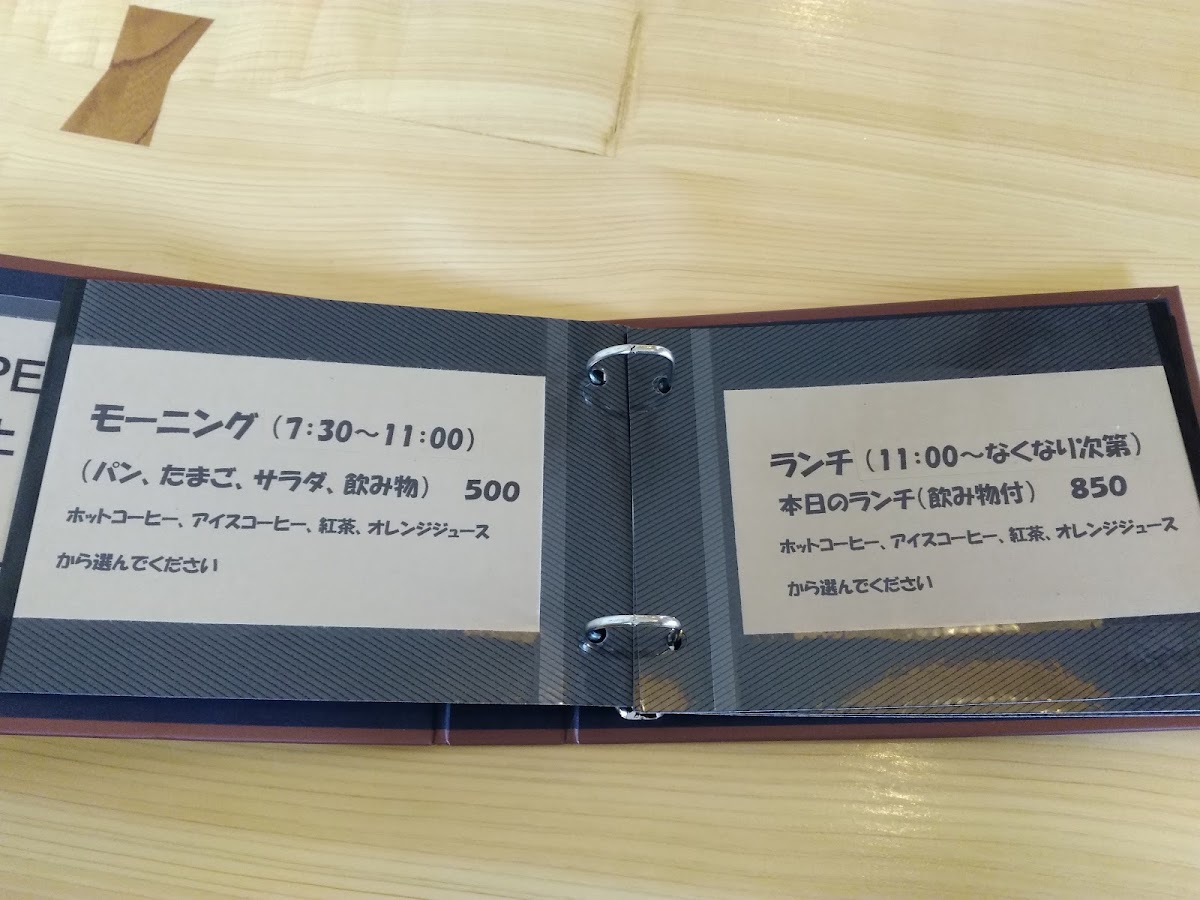 PE
モーニング（7:30～11:00）
（パン、たまご、サラダ、飲み物） 500
ホットコーヒー、アイスコーヒー、紅茶、オレンジジュース
から選んでください
ランチ（11:00～なくなり次第）
本日のランチ（飲み物付） 850
ホットコーヒー、アイスコーヒー、紅茶、オレンジジュース
から選んでください